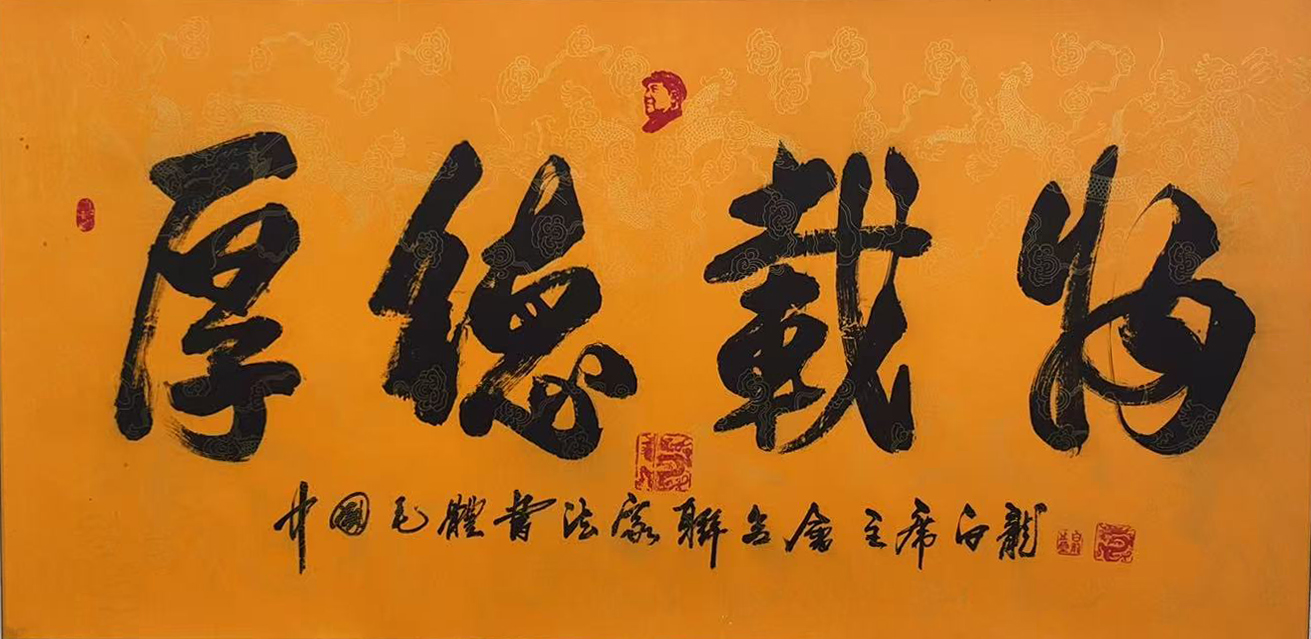 厚德載物
中國毛體書法家聯合會主席白龍